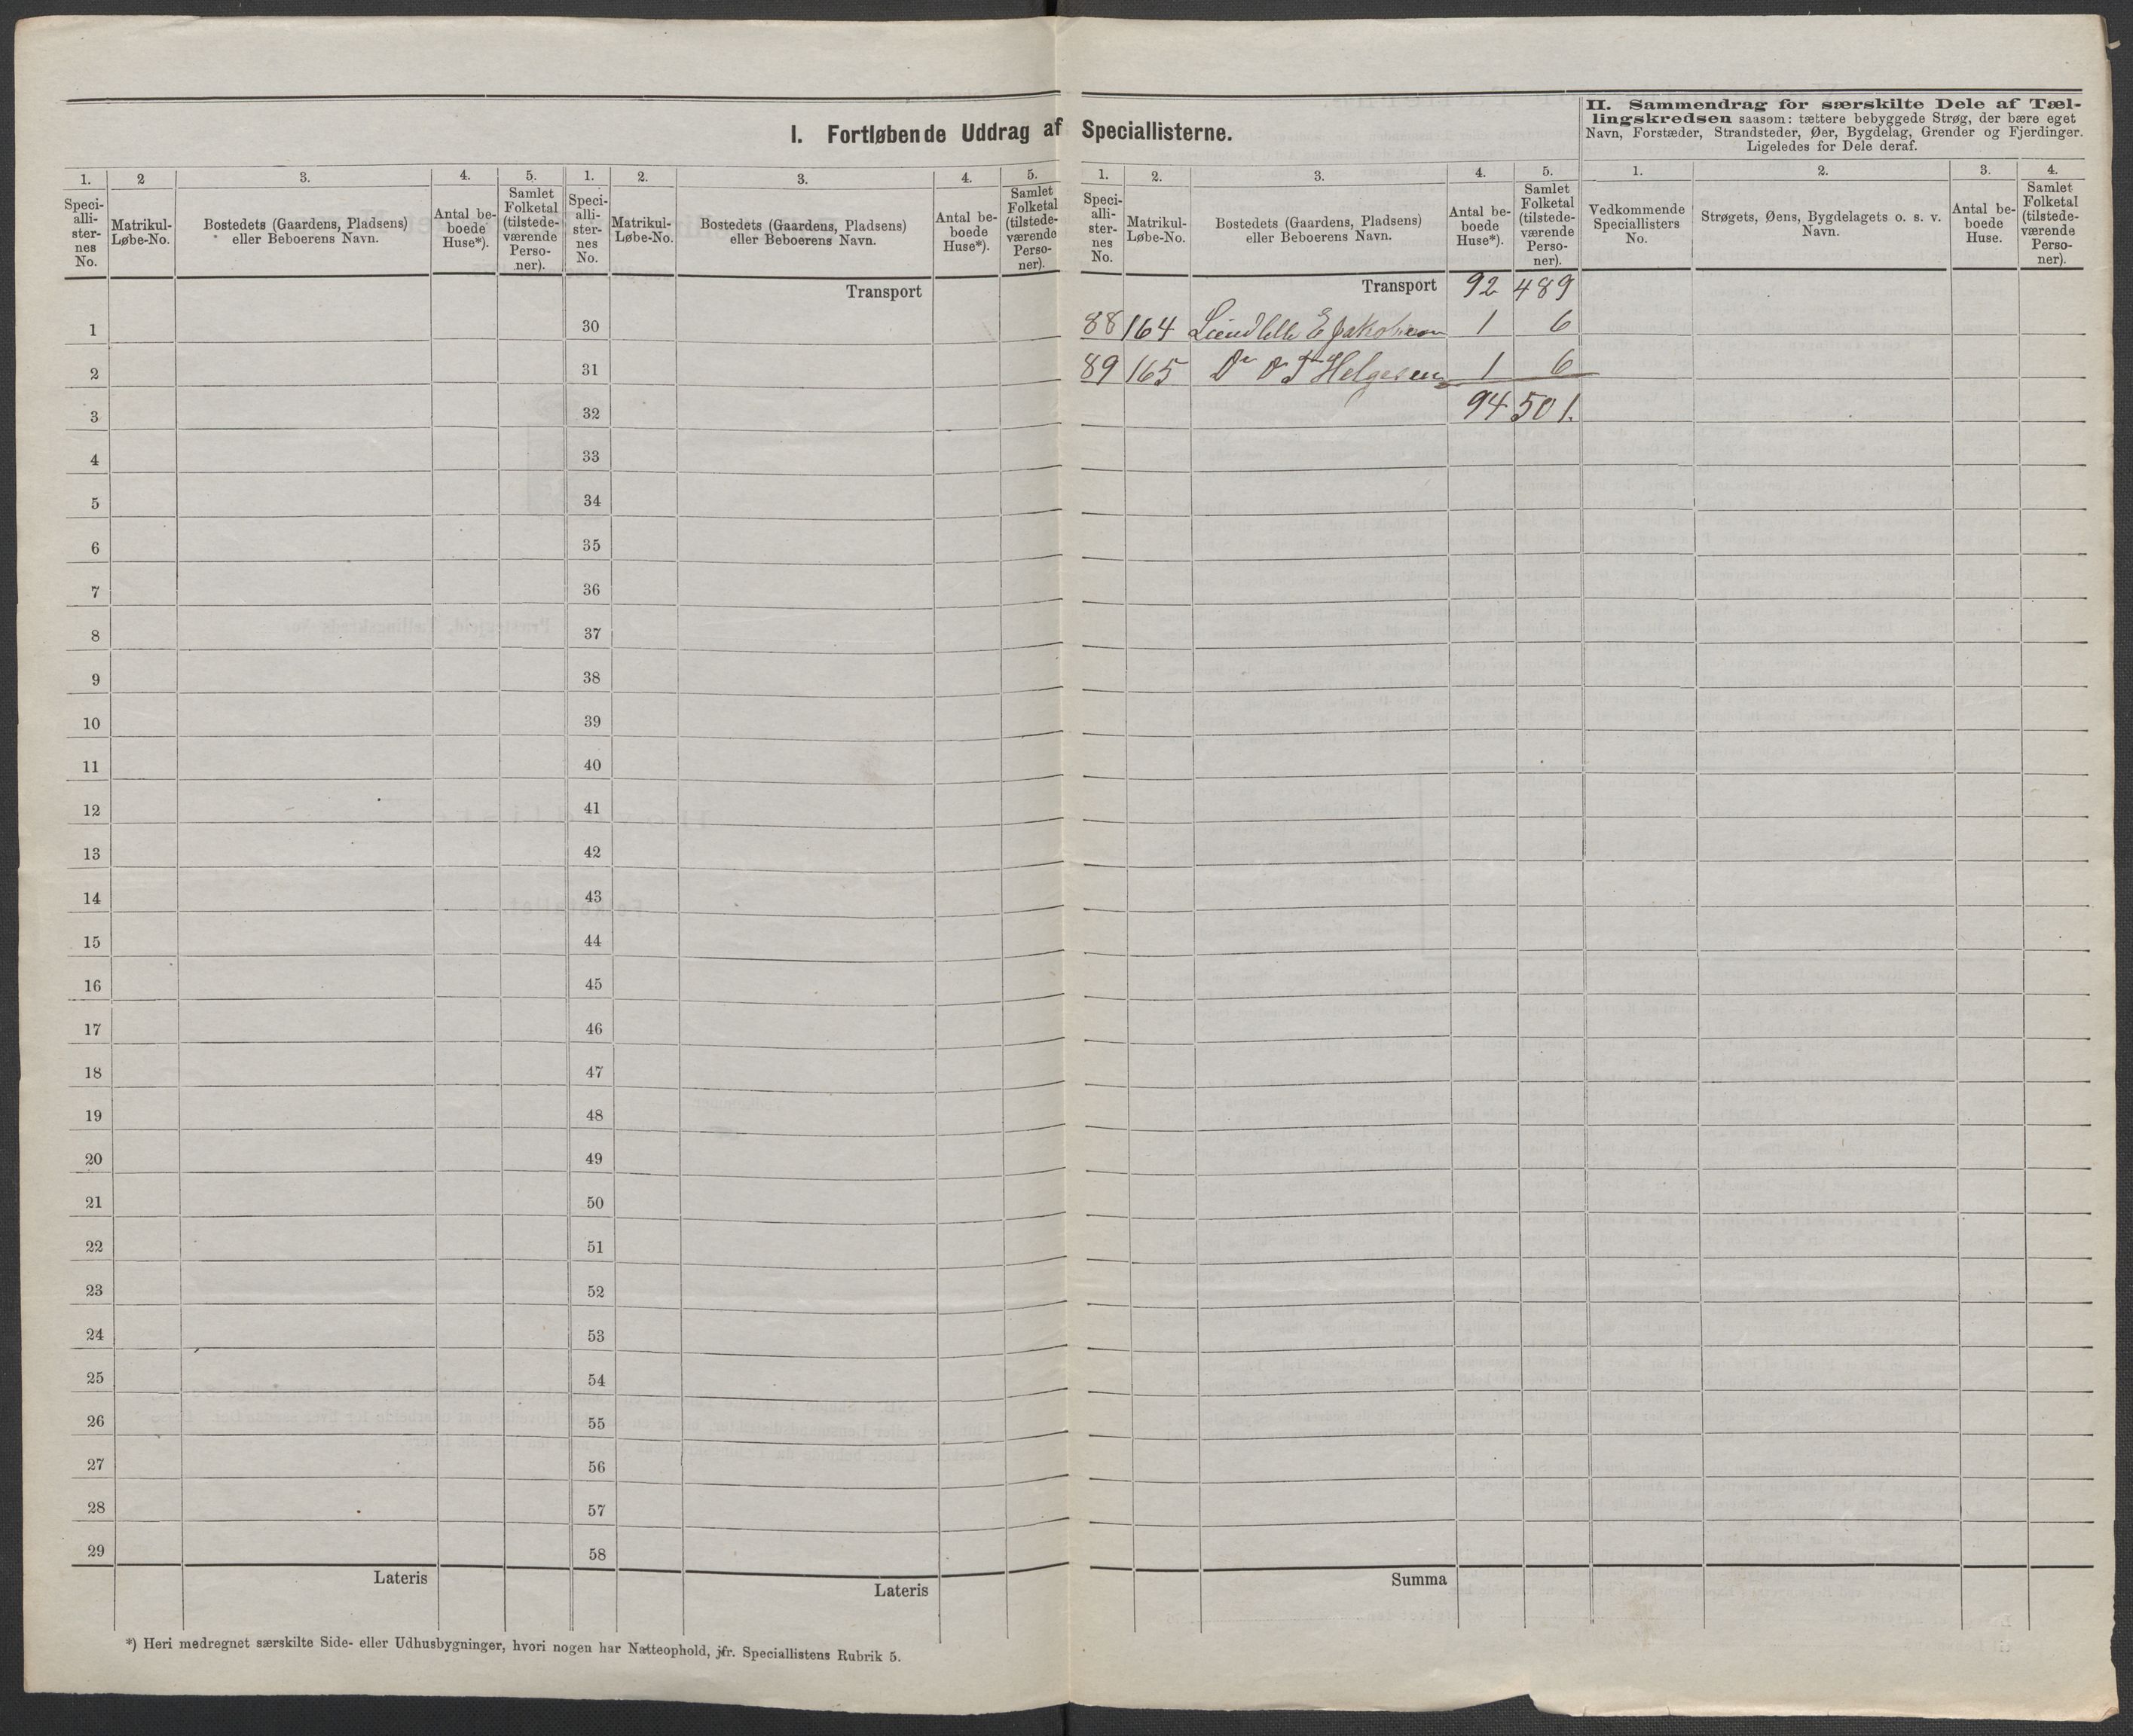 I. Fortløbende Uddrag af Speciallisterne.
II. Sammendrag for særskilte Dele af Tæl-
lingskredsen saasom: tættere bebyggede Strøg, der bære eget
Navn, Forstæder, Strandsteder, Øer, Bygdelag, Grender og Fjerdinger.
Ligeledes for Dele deraf.
1. 2 3. 4. 5. 1. 2. 3. 4. 5. 1. 2. 3. 4. 5. 1. 2. 3. 4.
Speci-
alli-
ster-
nes
No.
Matrikul-
Løbe-No.
Bostedets (Gaardens, Pladsens)
eller Beboerens Navn.
Antal be-
boede
Huse*).
Samlet
Folketal
(tilstede-
værende
Perso-
ner).
Speci-
alli-
ster-
nes
No.
Matrikul-
Løbe-No.
Bostedets (Gaardens, Pladsens)
eller Beboerens Navn.
Antal be-
boede
Huse*).
Samlet
Folketal
(tilstede-
værende
Perso-
ner).
Speci-
alli-
ster-
nes
No.
Matrikul-
Løbe-No.
Bostedets (Gaardens, Pladsens)
eller Beboerens Navn.
Antal be-
boede
Huse*).
Samlet
Folketal
(tilstede-
værende
Perso-
ner).
Vedkommende
Speciallisters
No.
Strøgets, Øens, Bygdelagets o. s. v.
Navn.
Antal be-
boede
Huse.
Samlet
Folketal
(tilstede-
værende
Perso-
ner).
Transport Transport 92 489
1 30 88 164 Lund lille E Jakobsen 1 6
2 31 89 165 Do T Helgesen 1 6
3 32 94 501.
4 33
5 34
6 35
7 36
8 37
9 38
10 39
11 40
12 41
13 42
14 43
15 44
16 45
17 46
18 47
19 48
20 49
21 50
22 51
23 52
24 53
25 54
26 55
27 56
28 57
29 58
Lateris Lateris Summa
*) Heri medregnet særskilte Side- eller Udhusbygninger, hvori nogen har Natteophold, jfr. Speciallistens Rubrik 5.